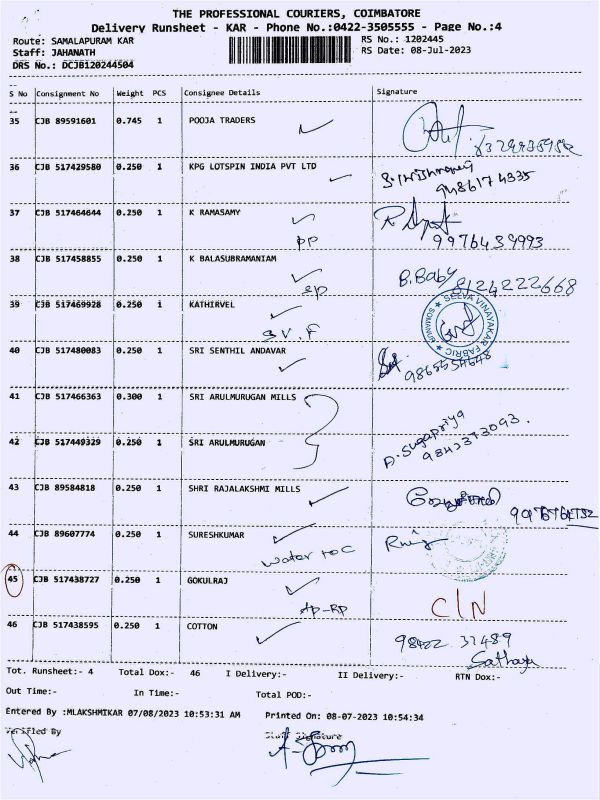 THE PROFESSIONAL COURIERS, COIMBATORE
Delivery Runsheet - KAR - Phone No.:0422-3505555 - Page No.:4
Route: SAMALAPURAM KAR RS No.: 1202445
Staff: JAHANATH RS Date: 08-Jul-2023
DRS No.: DCJB120244504
S No Consignment No Weight PCS Consignee Details Signature
35 CJB 89591601 0.745 1 POOJA TRADERS
36 CJB 517429580 0.250 1 KPG LOTSPIN INDIA PVT LTD
9486174335
37 CJB 517464644 0.250 1 K RAMASAMY
PP 9976439993
38 CJB 517458855 0.250 1 K BALASUBRAMANIAM B.Baby 8124222668
39 CJB 517469928 0.250 1 KATHIRVEL SELVA VINAYAKAR FABRIC
S.V.F
40 CJB 517480083 0.250 1 SRI SENTHIL ANDAVAR
41 CJB 517466363 0.300 1 SRI ARULMURUGAN MILLS
42 CJB 517449329 0.250 1 SRI ARULMURUGAN P.Sugapriya
9842373093.
43 CJB 89584818 0.250 1 SHRI RAJALAKSHMI MILLS
44 CJB 89607774 0.250 1 SURESHKUMAR
water
45 CJB 517438727 0.250 1 GOKULRAJ
AP-RP C/N
46 CJB 517438595 0.250 1 COTTON 98422 32489
Sathya
Tot. Runsheet:- 4 Total Dox:- 46 I Delivery:- II Delivery:- RTN Dox:-
Out Time:- In Time:- Total POD:-
Entered By :MLAKSHMIKAR 07/08/2023 10:53:31 AM Printed On: 08-07-2023 10:54:34
Verified By Staff Signature